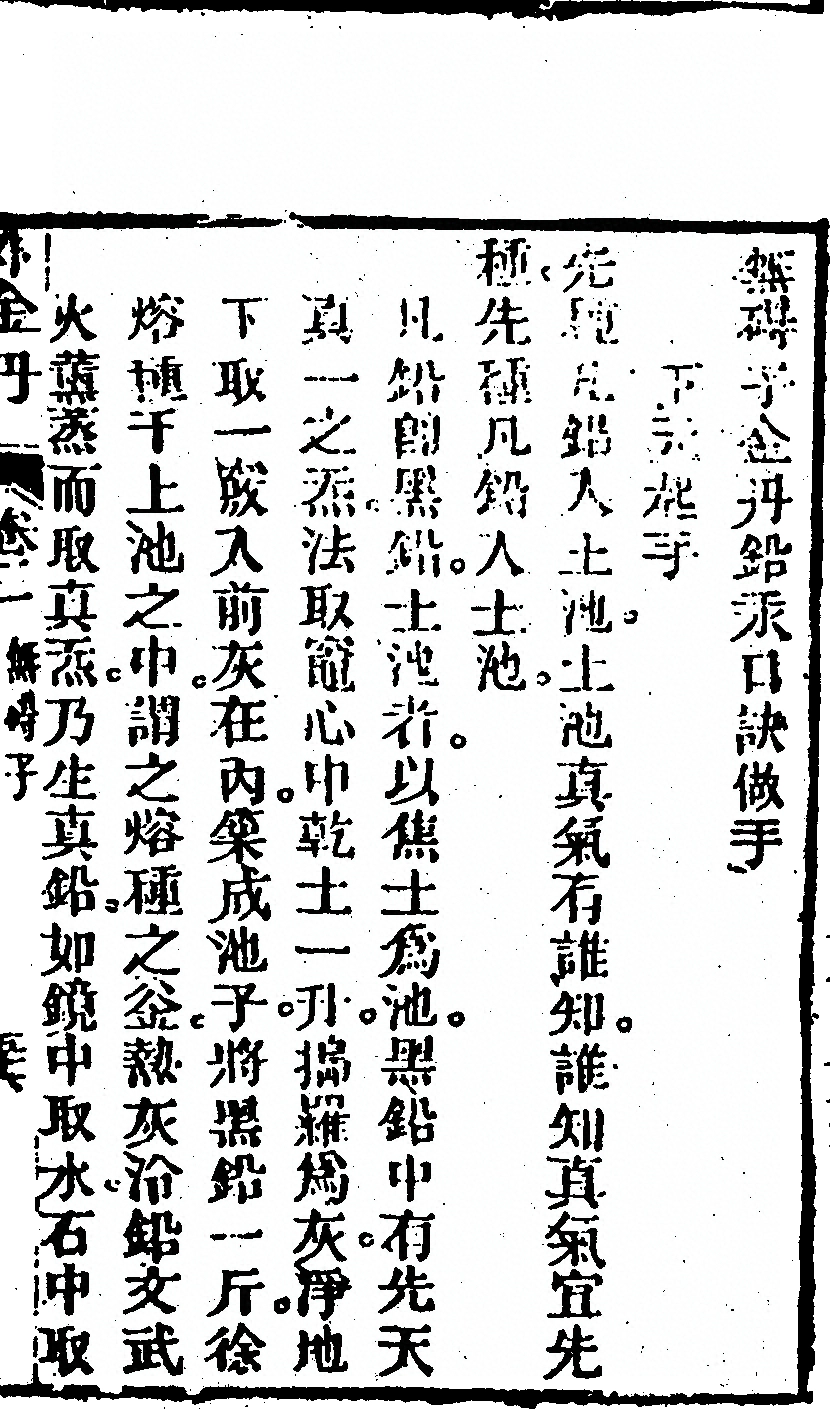 無碍子金丹鉛汞口訣做手
下起手
先種凡鉛入土池。土池真氣有誰知。誰知真氣宜先
種。先種凡鉛入土池。
凡鉛即黑鉛。土池者。以焦土為池。黑鉛中有先天
真一之炁。法取竈心中乾土一升。搗羅為灰。淨地
下取一入前灰在內。築成池子。將黑鉛一斤。徐
熔種于上池之中。謂之熔種之釜。熱灰冶鉛文武
火薰蒸而取真炁。乃生真鉛。如鏡中取水。石中取
外金丹 卷 無碍子